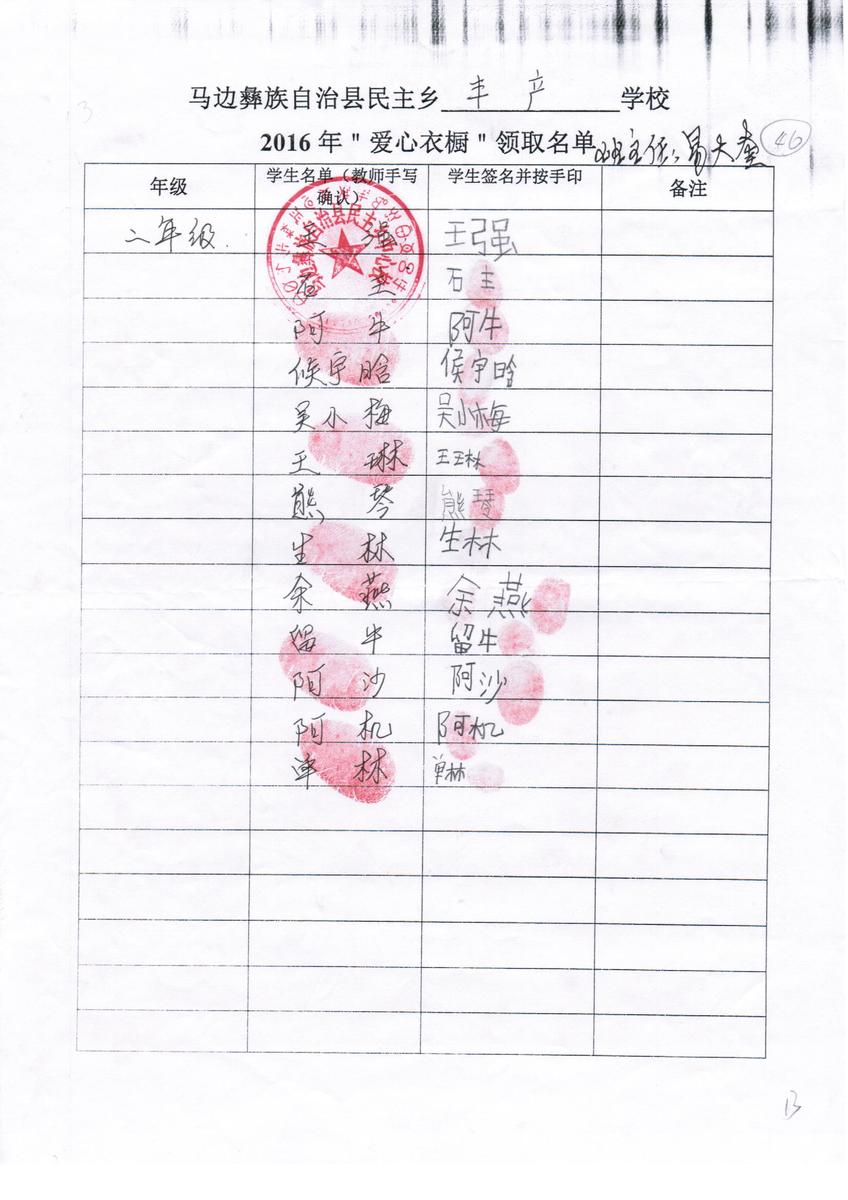 马边彝族自治县民主乡 丰 产 学校
2016 年 " 爱心衣橱 " 领取名单 班主任:易大奎 46
年级 学生名单（教师手写确认） 学生签名并按手印 备注
二年级 王 强 王强
石 主 石主
阿 牛 阿牛
候宇晗 候宇晗
吴小梅 吴小梅
王 琳 王琳
熊 琴 熊琴
生 林 生林
余 燕 余燕
留 牛 留牛
阿 沙 阿沙
阿 机 阿机
单 林 单林
13